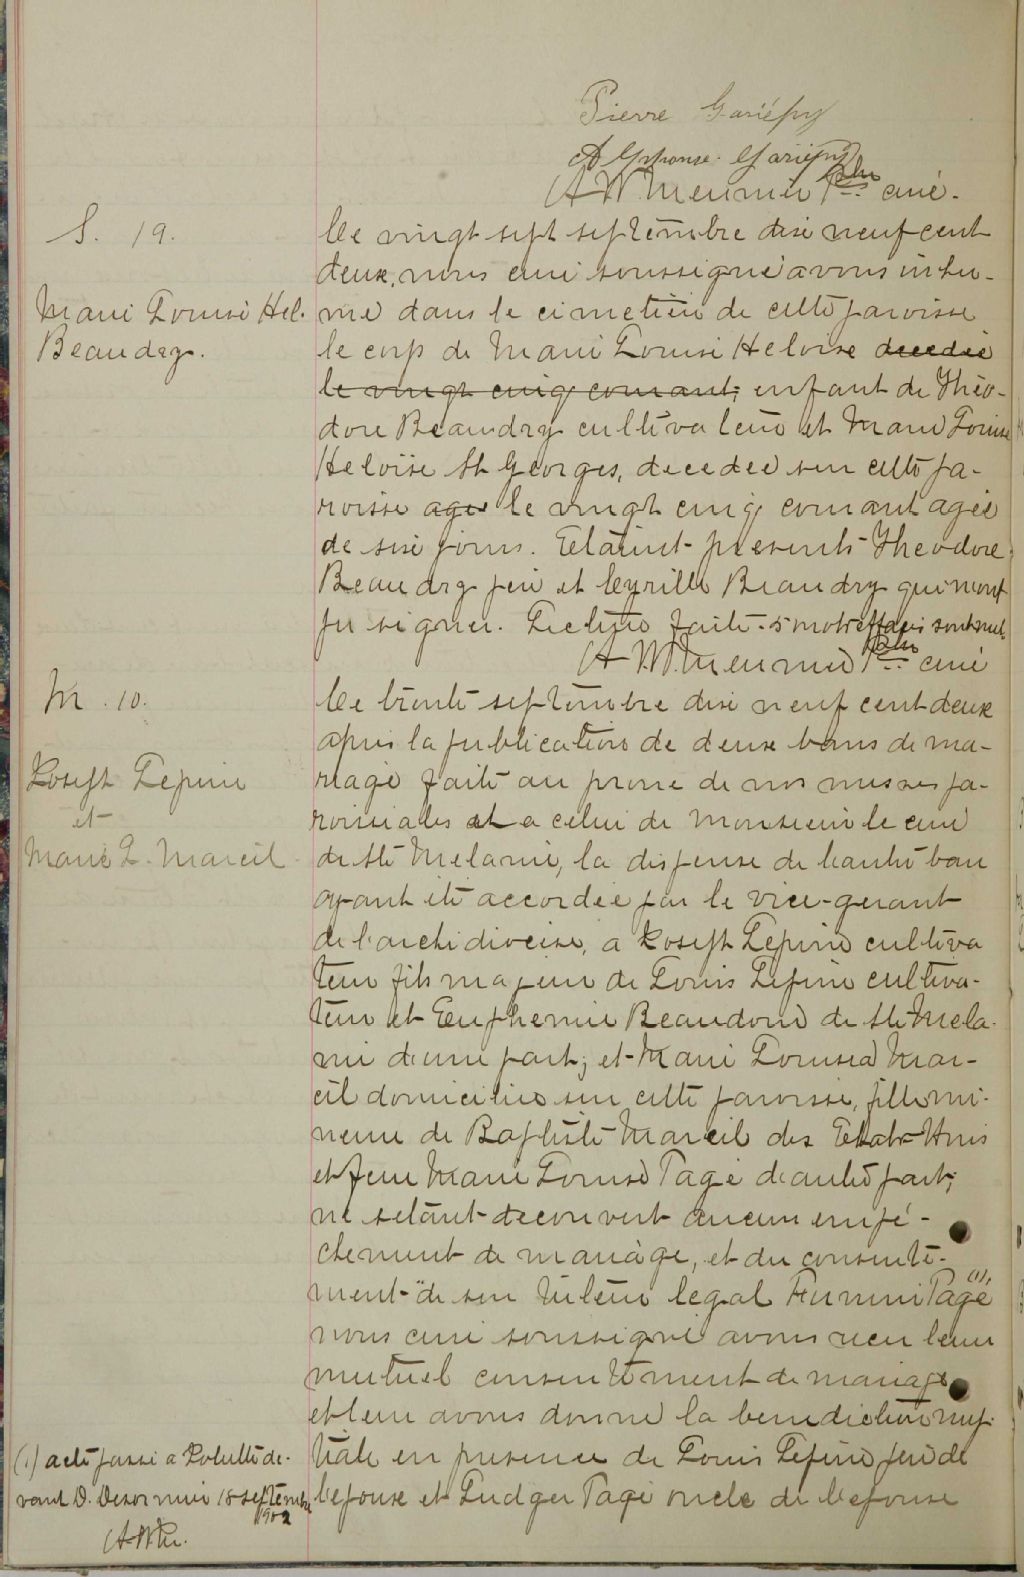 Pierre Gariépy
Alphonse Gariépy
A W. Meunier Ptre curé.
S. 19.
Marie Louise Hel.
Beaudry.
Le vingt sept septembre dix neuf cent
deux, nous curé soussigné avons inhu-
mé dans le cimetière de cette paroisse
le corp de Marie Louise Heloise decedée
le vingt cinq courant, enfant de Théo-
dore Beaudry cultivateur et Marie Louise
Heloïse St Georges, decedée sur cette pa-
roisse agee le vingt cinq courant agée
de six jours. Etaient presents Theodore
Beaudry père et Cyrille Beaudry qui n'ont
pu signer. Lecture faite. 5 mots effacés sont nuls
A W. Meunier Ptre curé
M. 10.
Joseph Lepine
et
Marie L. Marcil
Le trente septembre dix neuf cent deux
apres la publication de deux bans de ma-
riage faite au prone de nos messes pa-
roissiales et a celui de Monsieur le curé
de Ste Melanie, la dispense de l'autre ban
ayant été accordée par le vice-gerant
de l'archidiocèse, a Joseph Lepine cultiva
teur fils majeur de Louis Lepine cultiva-
teur et Euphemie Beaudoin de Ste Mela-
nie d'une part; et Marie Louisa Mar-
cil domiciliée sur cette paroisse, fille mi-
neure de Baptiste Marcil des Etats-Unis
et feue Marie Louise Pagé d'autre part;
ne s'etant decouvert aucun empé-
chement de mariage, et du consente-
ment de son tuteur legal Pagé (1),
nous curé soussigné avons recu leur
mutuel consentement de mariage
et leur avons donné la benediction nup-
tiale en presence de Louis Lepine père de
l'epoux et Ludger Pagé oncle de l'epouse
(1) acte passé a Joliette de-
vant D. Desormier 18 septembre
1902
A W M.